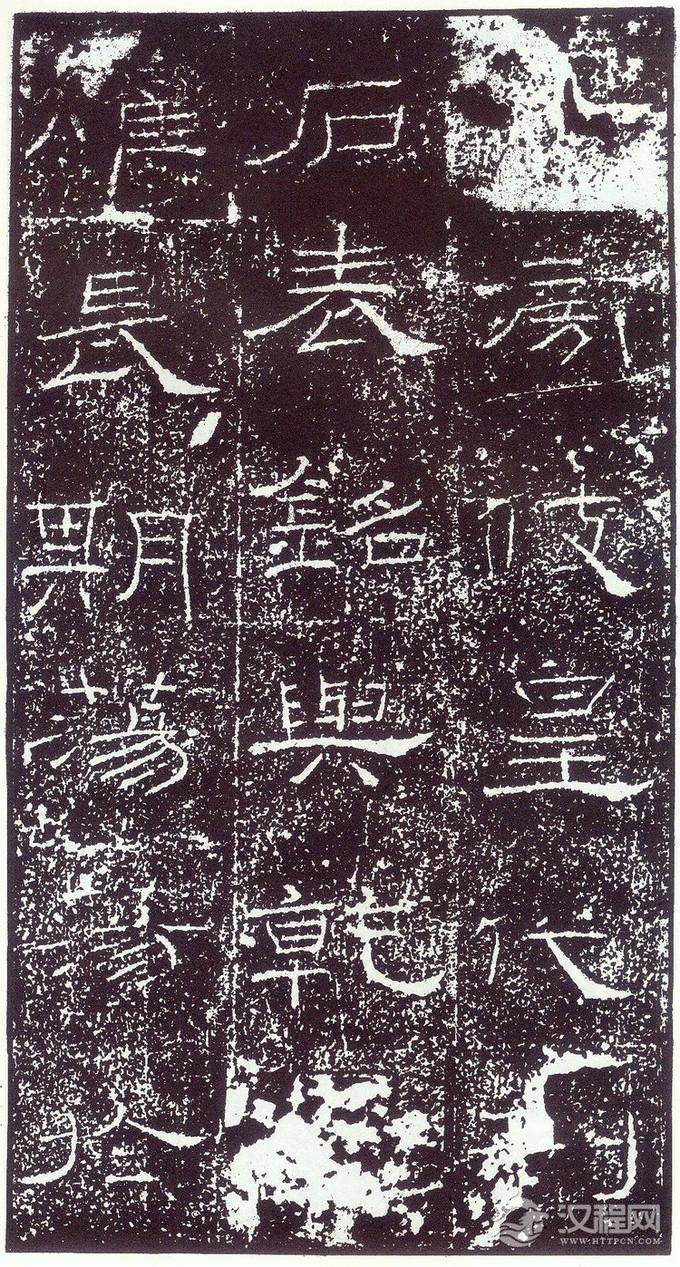 旁伎皇代刊
石表銘與乾
燿長期蕩蕩於
汉程网
WWW.HTTPCN.COM